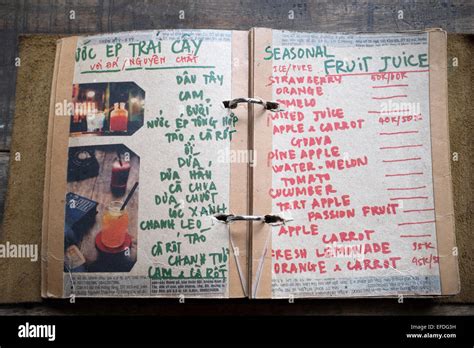 NƯỚC ÉP TRÁI CÂY
VỚI ĐÁ / NGUYÊN CHẤT
DÂU TÂY
CAM
BƯỞI
NƯỚC ÉP TỔNG HỢP
TÁO & CÀ RỐT
ỔI
DỨA
DƯA HẤU
CÀ CHUA
DƯA CHUỘT
CÓC XANH
CHANH LEO
TÁO
CÀ RỐT
CHANH TƯƠI
CAM & CÀ RỐT
SEASONAL FRUIT JUICE
ICE / PURE
STRAWBERRY
ORANGE
POMELO
MIXED JUICE
APPLE & CARROT
GUAVA
PINE APPLE
WATER-MELON
TOMATO
CUCUMBER
TART APPLE
PASSION FRUIT
APPLE
CARROT
FRESH LEMONADE
ORANGE & CARROT
40K
60K
35K
45K
alamy
Image ID: EFDG3H
www.alamy.com